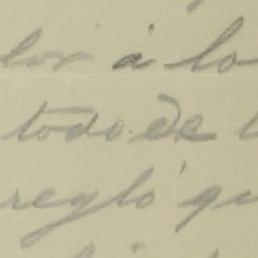 lor á lo
todo de l
reglo qu